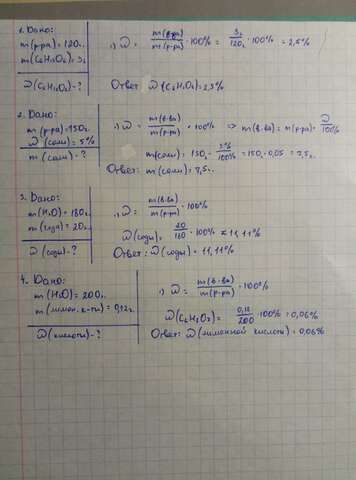 1. Дано:
m(р-ра) = 120г.
m(C6H12O6) = 3г
ω(C6H12O6) - ?
1) ω = m(в-ва)/m(р-ра) · 100% = 3г/120г · 100% = 2,5%
Ответ: ω(C6H12O6) = 2,5%
2. Дано:
m(р-ра) = 150г.
ω(соли) = 5%
m(соли) - ?
1) ω = m(в-ва)/m(р-ра) · 100% ⇒ m(в-ва) = m(р-ра) · ω/100%
m(соли) = 150г · 5%/100% = 150 · 0,05 = 7,5г.
Ответ: m(соли) = 7,5г.
3. Дано:
m(H2O) = 180г.
m(сода) = 20г.
ω(соды) - ?
1) ω = m(в-ва)/m(р-ра) · 100%
ω(соды) = 20/180 · 100% ≈ 11,11%
Ответ: ω(соды) = 11,11%
4. Дано:
m(H2O) = 200г.
m(лимон. к-ты) = 0,12г.
ω(кислоты) - ?
1) ω = m(в-ва)/m(р-ра) · 100%
= 0,12/200 · 100% = 0,06%
Ответ: ω(лимонной кислоты) = 0,06%